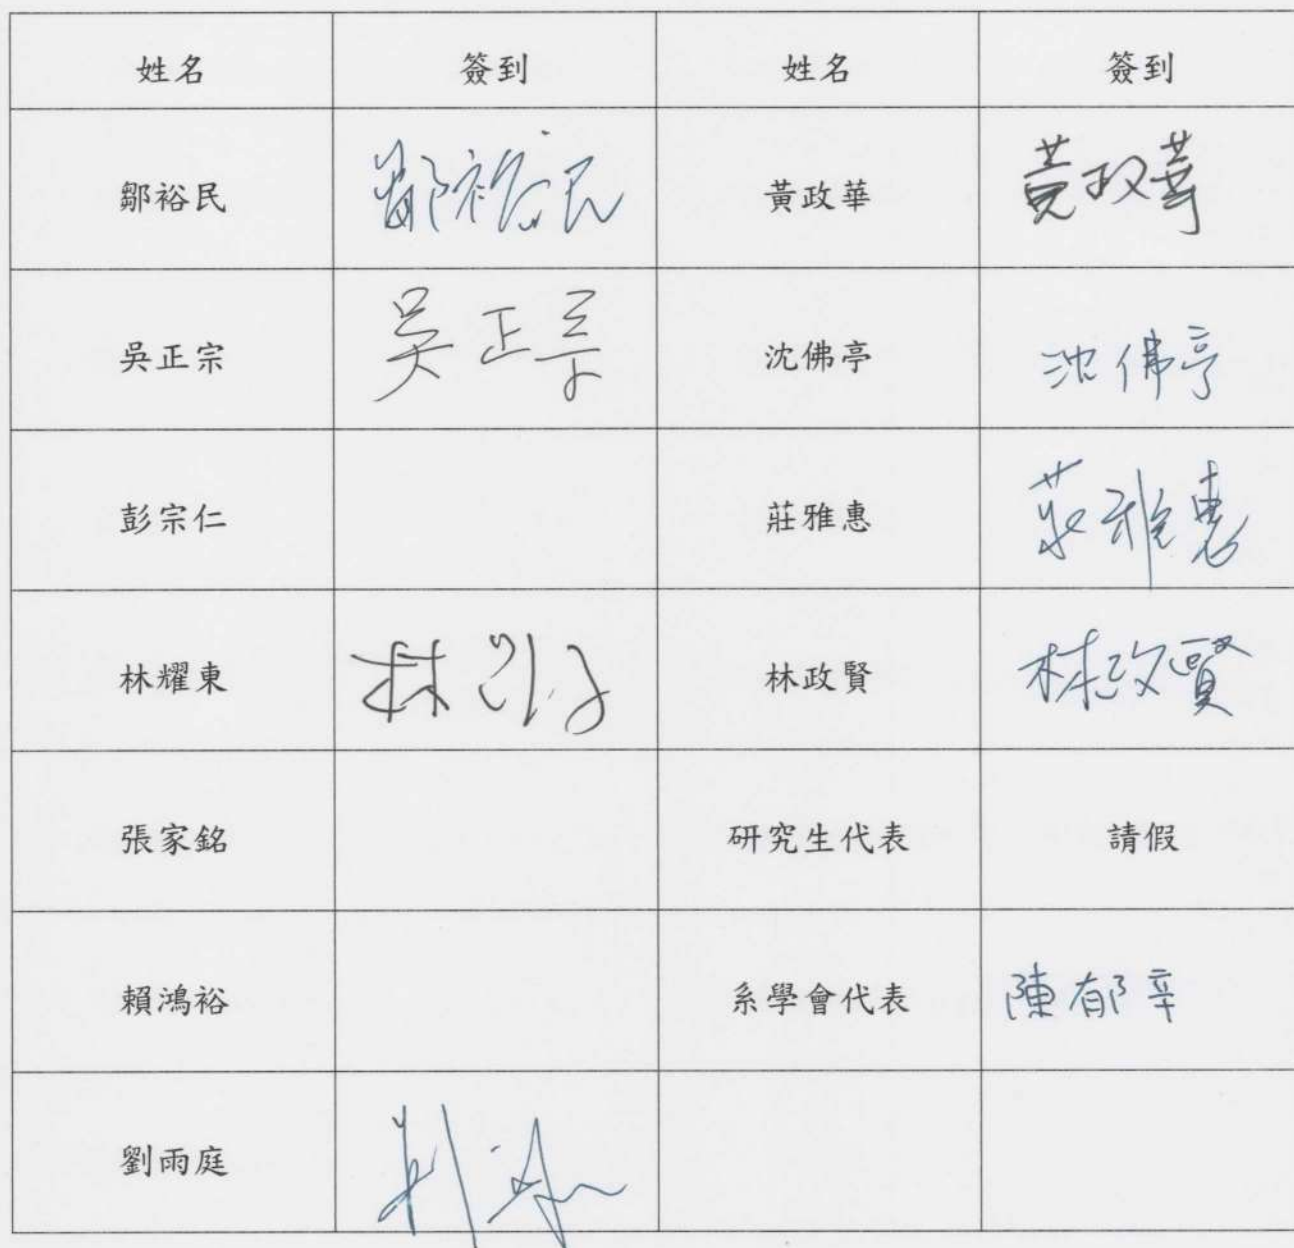 姓名 簽到 姓名 簽到
鄒裕民 鄒裕民 黃政華 黃政華
吳正宗 吳正宗 沈佛亭 沈佛亭
彭宗仁 莊雅惠 莊雅惠
林耀東 林 林政賢 林政賢
張家銘 研究生代表 請假
賴鴻裕 系學會代表 陳郁辛
劉雨庭